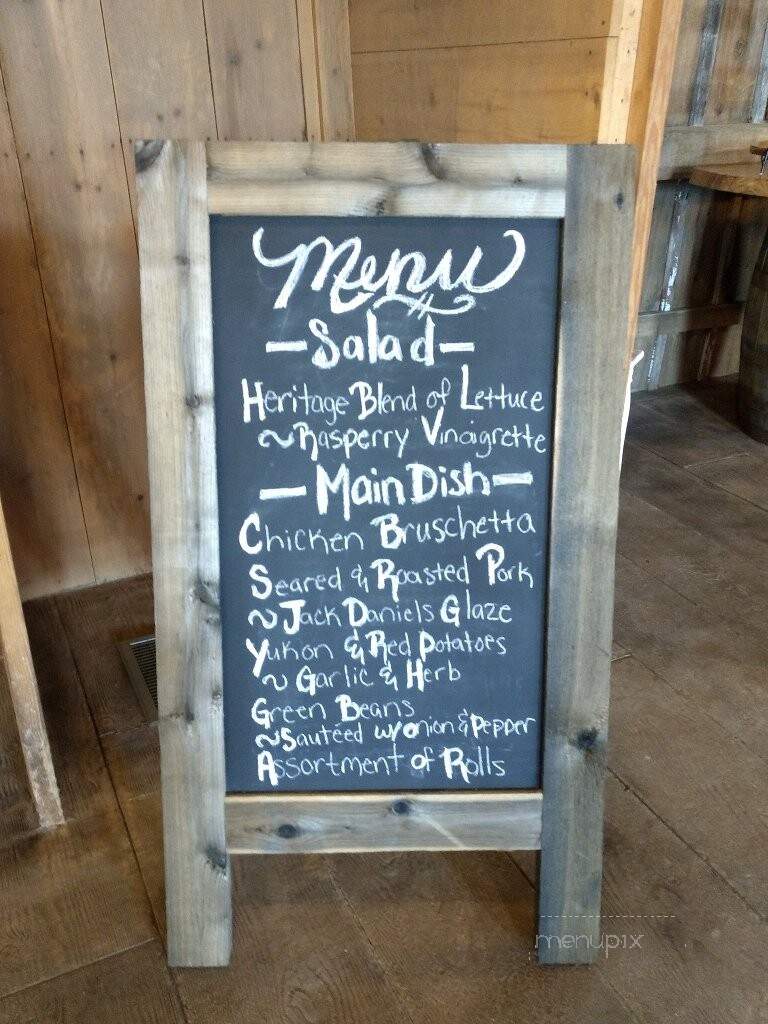 Menu
-Salad-
Heritage Blend of Lettuce
~Rasperry Vinaigrette
-Main Dish-
Chicken Bruschetta
Seared & Roasted Pork
~Jack Daniels Glaze
Yukon & Red Potatoes
~ Garlic & Herb
Green Beans
~Sautéed w/onion & Pepper
Assortment of Rolls
menupix